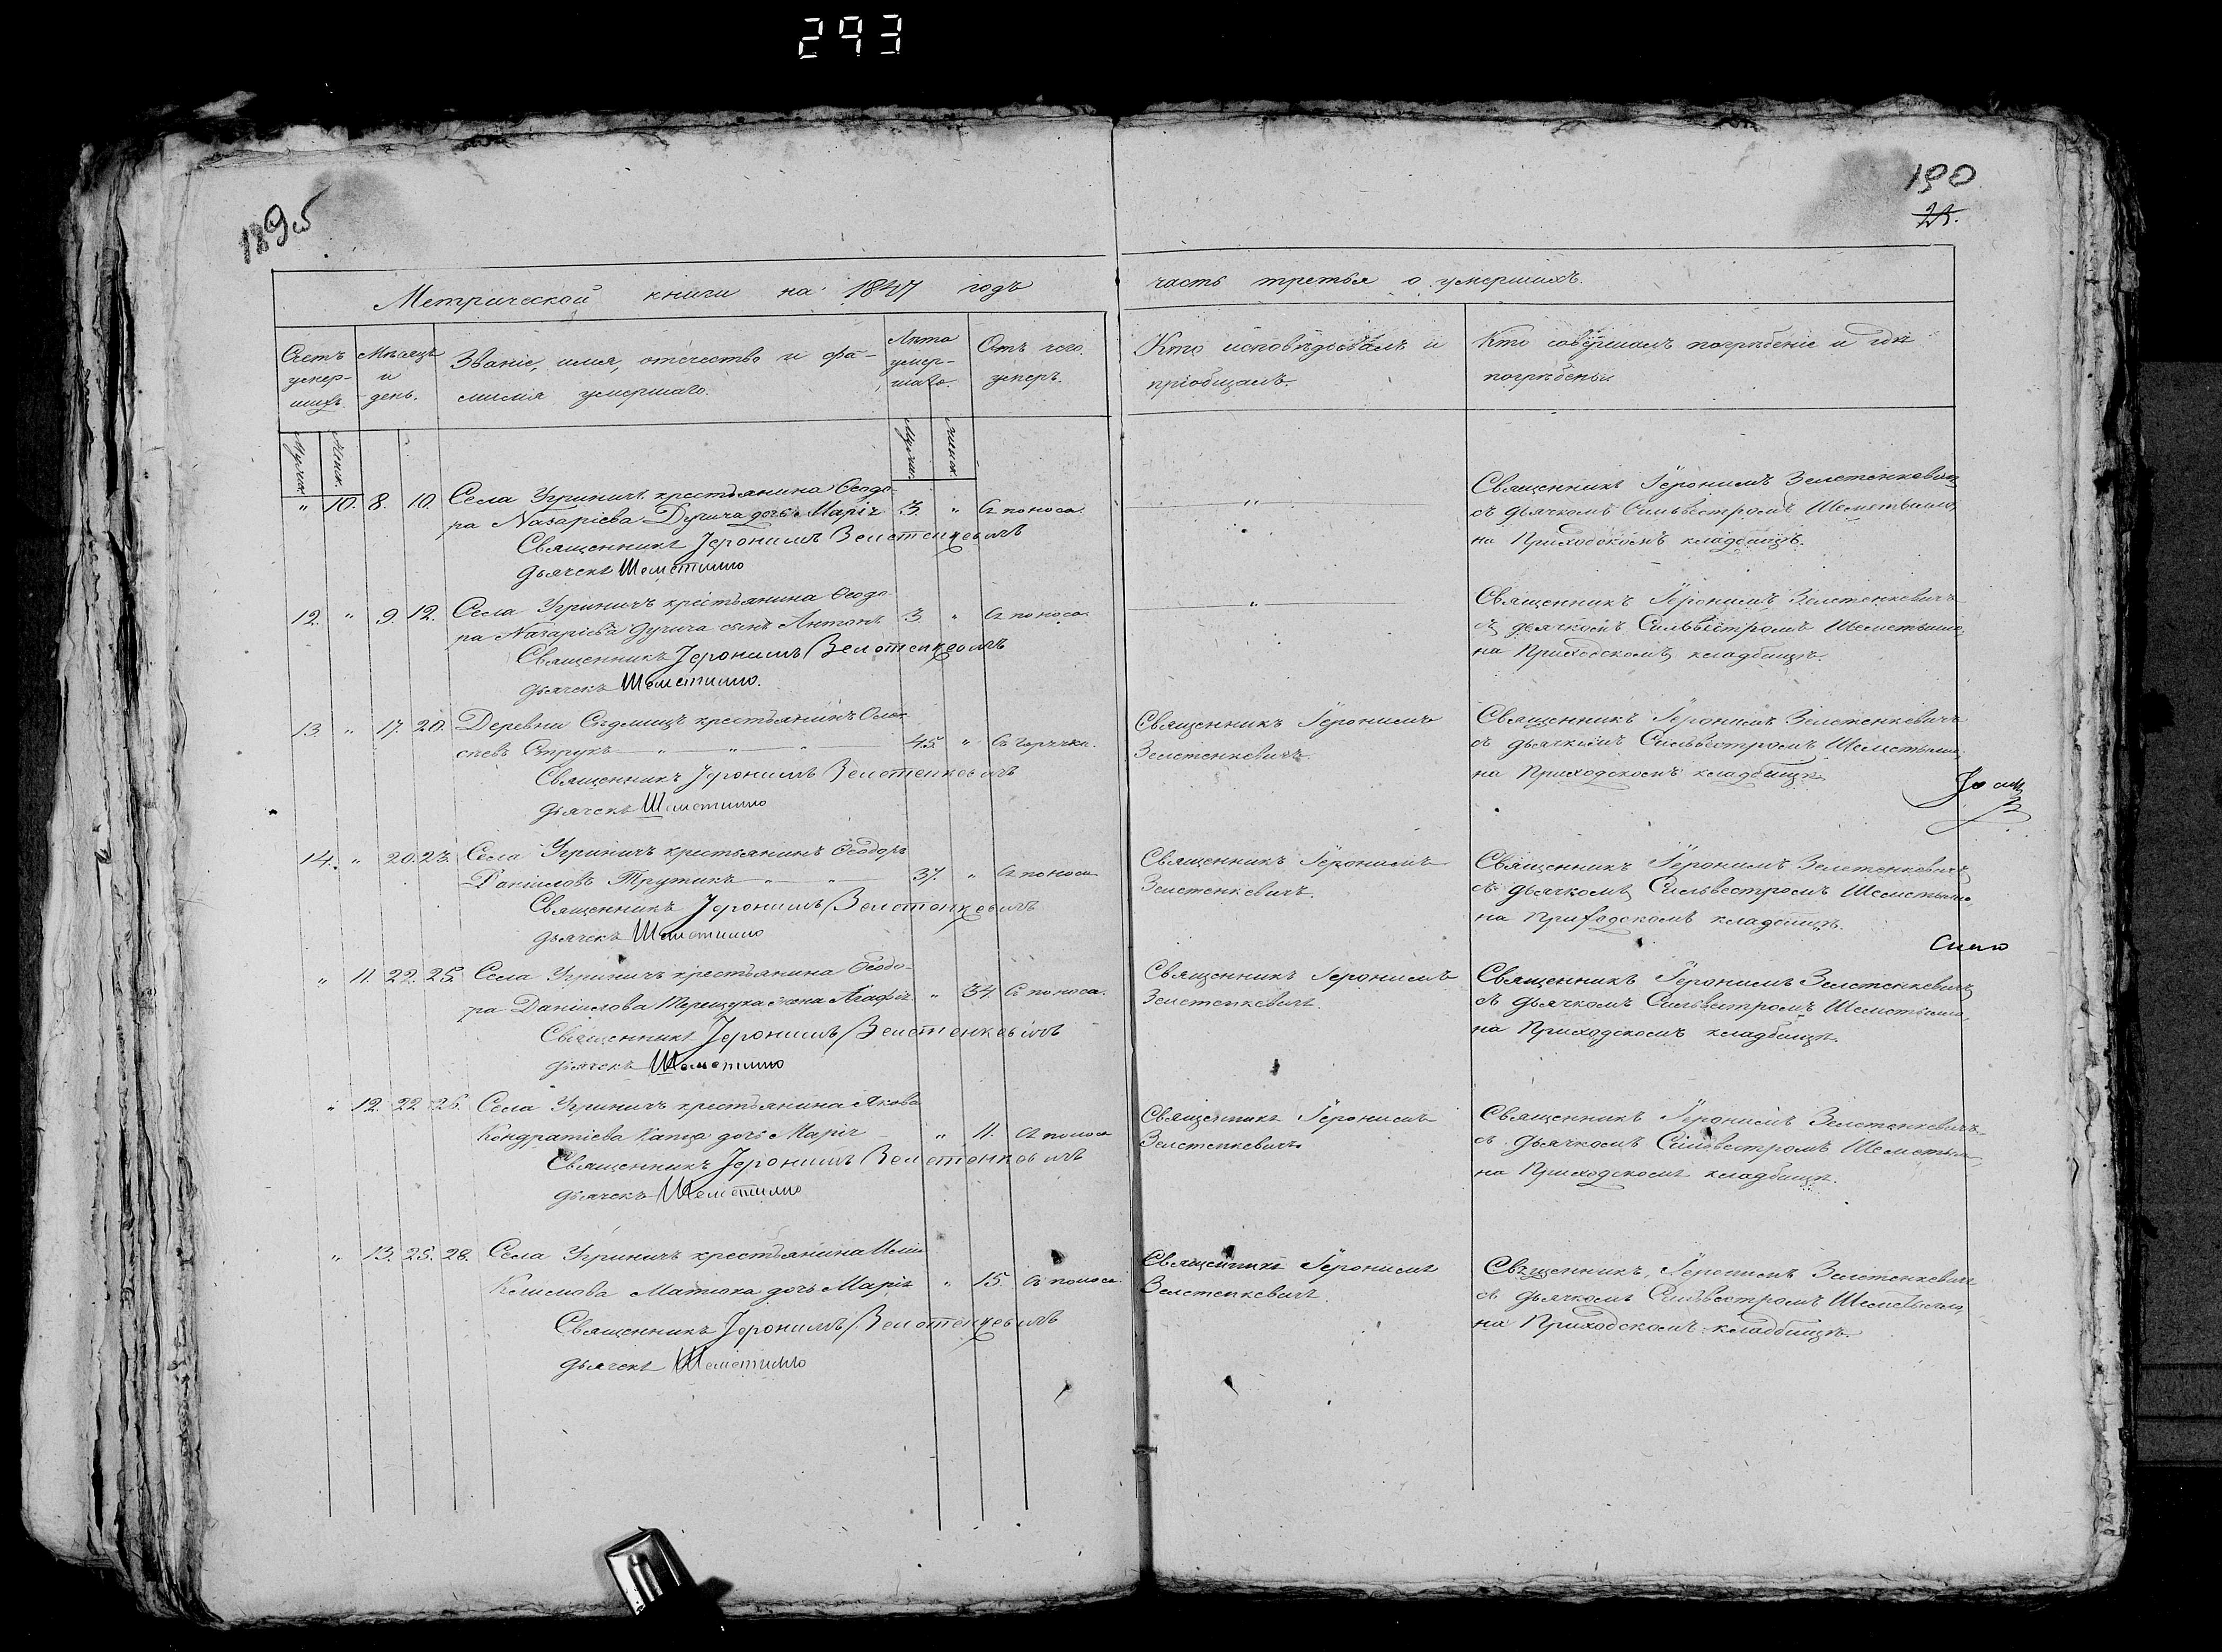 293
189об
190
24.
Метрической книги на 1847 годъ часть третья о умершихъ.
Счетъ умер-шихъ.
Мѣсяцъ и день.
Званіе, имя, отечество и фа-
милія умершаго.
Лѣта умер-шаго.
Отъ чего умеръ.
Кто исповѣдывалъ и
пріобщалъ.
Кто совершалъ погребеніе и гдѣ
погребены
Мужск.
Женск.
Мужск.
Женск.
" 10. 8. 10. Села Угриничъ крестьянина Ѳеодо-
ра Назаріева Дугича дочь Марія 3. " Съ поноса.
Священникъ Іеронимъ Зелетенкевичъ
дьячекъ Шеметилло
"
Священникъ Іеронимъ Зелетенкевичъ
съ дьячкомъ Сильвестромъ Шеметилло,
на Приходскомъ кладбищѣ.
12. " 9. 12. Села Угриничъ крестьянина Ѳеодо-
ра Назаріева Дугича сынъ Антонъ 3. " Съ поноса.
Священникъ Іеронимъ Зелетенкевичъ
дьячекъ Шеметилло.
"
Священникъ Іеронимъ Зелетенкевичъ
съ дьячкомъ Сильвестромъ Шеметилло,
на Приходскомъ кладбищѣ.
13. " 17. 20. Деревни Сѣдлищъ крестьянинъ Олек
сѣевъ Струкъ " " " 45. " Съ горячки.
Священникъ Іеронимъ Зелетенкевичъ
дьячекъ Шеметилло
Священникъ Іеронимъ
Зелетенкевичъ
Священникъ Іеронимъ Зелетенкевичъ
съ дьячкомъ Сильвестромъ Шеметилло,
на Приходскомъ кладбищѣ
14. " 20. 23. Села Угриничъ крестьянинъ Ѳеодоръ
Даніиловъ " " 37. " Съ поноса
Священникъ Іеронимъ Зелетенкевичъ
дьячекъ Шеметилло
Священникъ Іеронимъ
Зелетенкевичъ.
Священникъ Іеронимъ Зелетенкевичъ
съ дьячкомъ Сильвестромъ Шеметилло,
на Приходскомъ кладбищѣ.
" 11. 22. 25. Села Угриничъ крестьянина Ѳеодо-
ра Даніилова жена Агафія " 34. Съ поноса.
Священникъ Іеронимъ Зелетенкевичъ
дьячекъ Шеметилло
Священникъ Іеронимъ
Зелетенкевичъ.
Священникъ Іеронимъ Зелетенкевичъ
съ дьячкомъ Сильвестромъ Шеметилло,
на Приходскомъ кладбищѣ.
" 12. 22. 26. Села Угриничъ крестьянина Якова
Кондратіева дочь Марія " 11. Съ поноса
Священникъ Іеронимъ Зелетенкевичъ
дьячекъ Шеметилло
Священникъ Іеронимъ
Зелетенкевичъ
Священникъ Іеронимъ Зелетенкевичъ
съ дьячкомъ Сильвестромъ Шеметилло,
на Приходскомъ кладбищѣ.
" 13. 25. 28. Села Угриничъ крестьянина Иліи
Климова Матюка дочь Марія " 15. Съ поноса.
Священникъ Іеронимъ Зелетенкевичъ
дьячекъ Шеметилло
Священникъ Іеронимъ
Зелетенкевичъ.
Священникъ, Іеронимъ Зелетенкевичъ
съ дьячкомъ Сильвестромъ Шеметилло,
на Приходскомъ кладбищѣ.